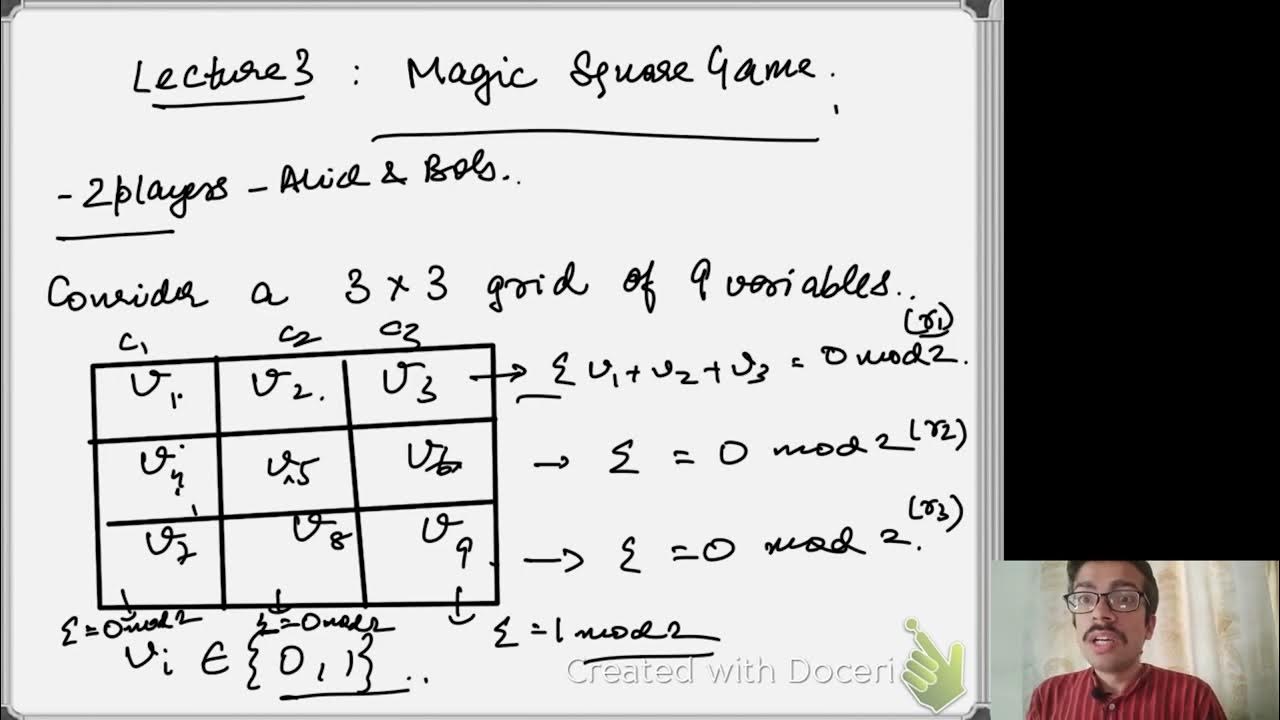 Lecture 3 : Magic Square Game.
- 2 players - Alice & Bob..
Consider a 3 × 3 grid of 9 variables..
C1 C2 C3 (r1)
V1 V2 V3 → Σ V1 + V2 + V3 = 0 mod 2.
V4 V5 V6 → Σ = 0 mod 2 (r2)
V7 V8 V9 → Σ = 0 mod 2. (r3)
Σ = 0 mod 2 Σ = 0 mod 2 Σ = 1 mod 2
Vi ∈ {0, 1} ..
Created with Doceri